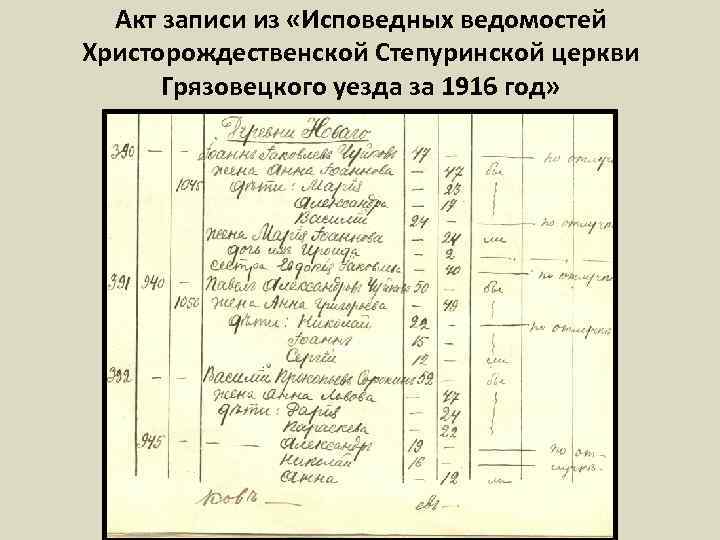 Акт записи из «Исповедных ведомостей
Христорождественской Степуринской церкви
Грязовецкого уезда за 1916 год»
Деревни Новаго
390 — — Іоаннъ Іаковлевъ 47 — по отлучкѣ
жена Анна Іоаннова — 47
1045 дѣти: Марія — 23
Александра — 17
Василій 24 — по отлучкѣ
жена Марія Іоаннова — 24
дочь ихъ — 2
сестра Іаковлева — 70
391 940 — Павелъ Александровъ 50 —
1050 жена Анна Григорьева — 49
дѣти: Николай 22 — по отлучкѣ
Іоаннъ 15 —
Сергій 12 —
392 — — Василій Прокопьевъ Сорокинъ 52 —
жена Анна Львова — 47
дѣти: Дарія — 24
Параскева — 22
945 — Александръ 19 — по от-
Николай 16 — лучкѣ
Анна — 12
ковъ